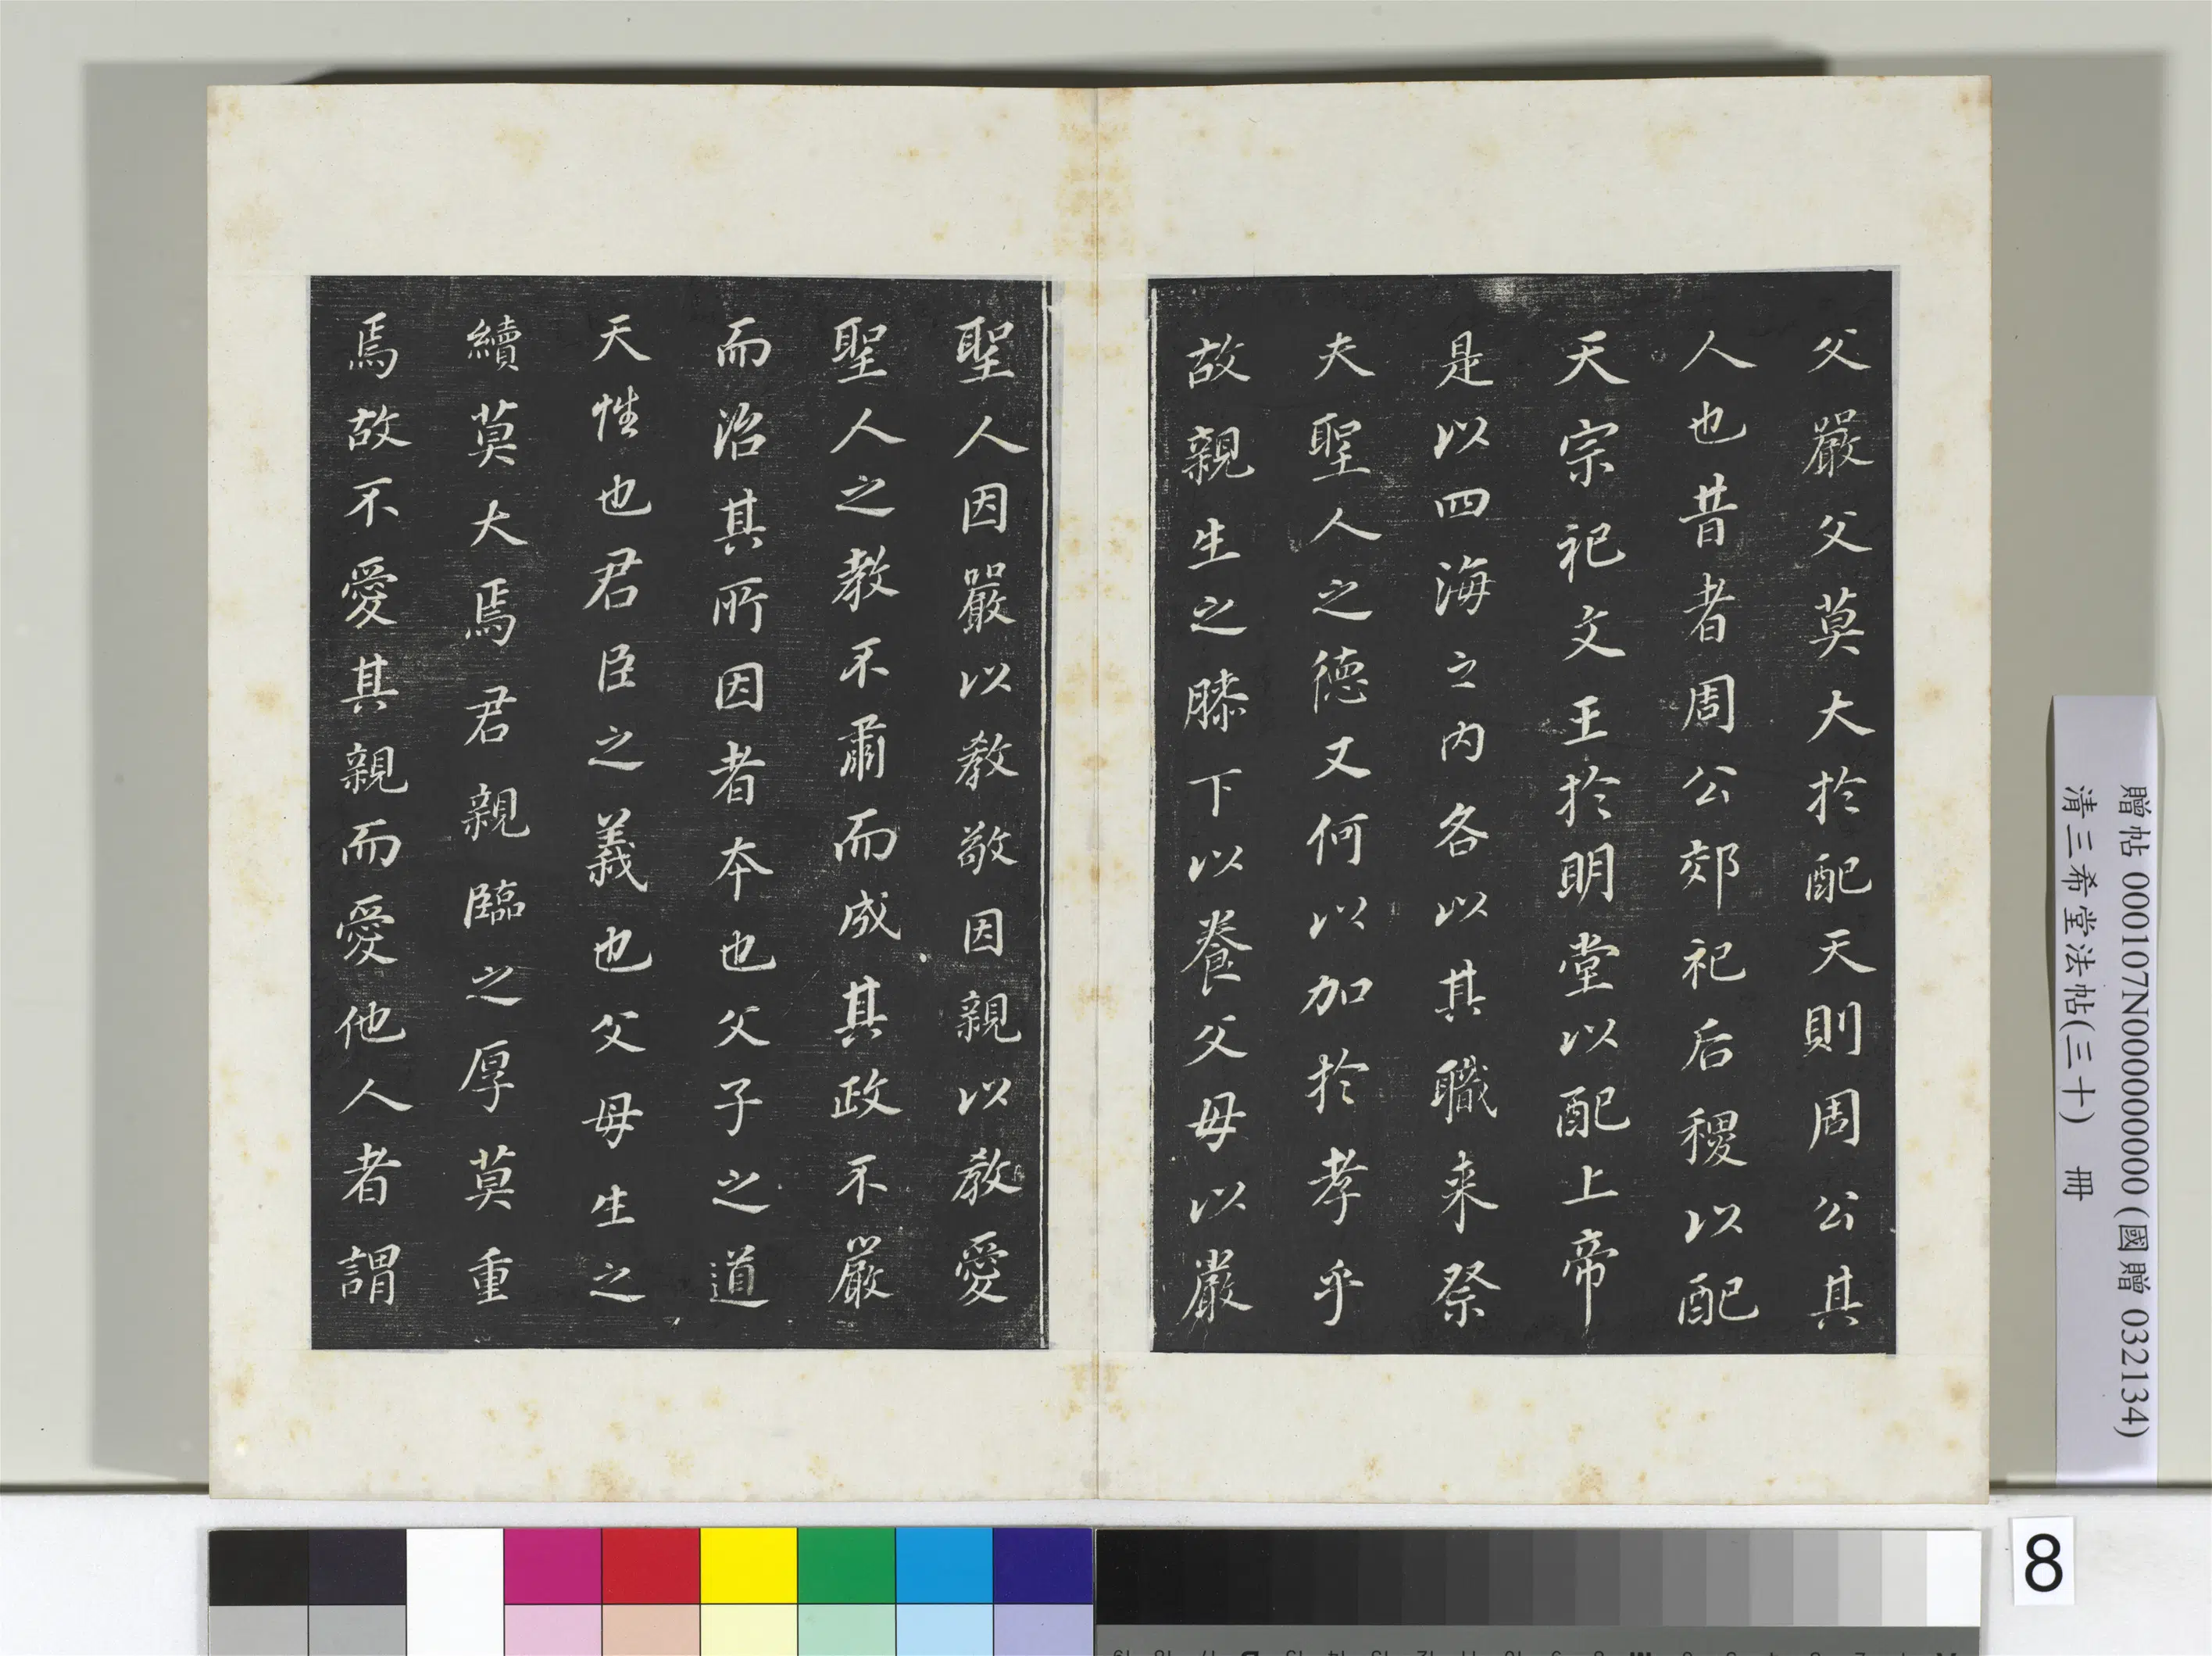 父嚴父莫大於配天則周公其
人也昔者周公郊祀后稷以配
天宗祀文王於明堂以配上帝
是以四海之内各以其職来祭
夫聖人之德又何以加於孝乎
故親生之膝下以養父母以嚴
聖人因嚴以教敬因親以教愛
聖人之教不肅而成其政不嚴
而治其所因者本也父子之道
天性也君臣之義也父母生之
續莫大焉君親臨之厚莫重
焉故不愛其親而愛他人者謂
贈帖 000107N000000000 (國贈 032134)
清三希堂法帖(三十) 冊
8